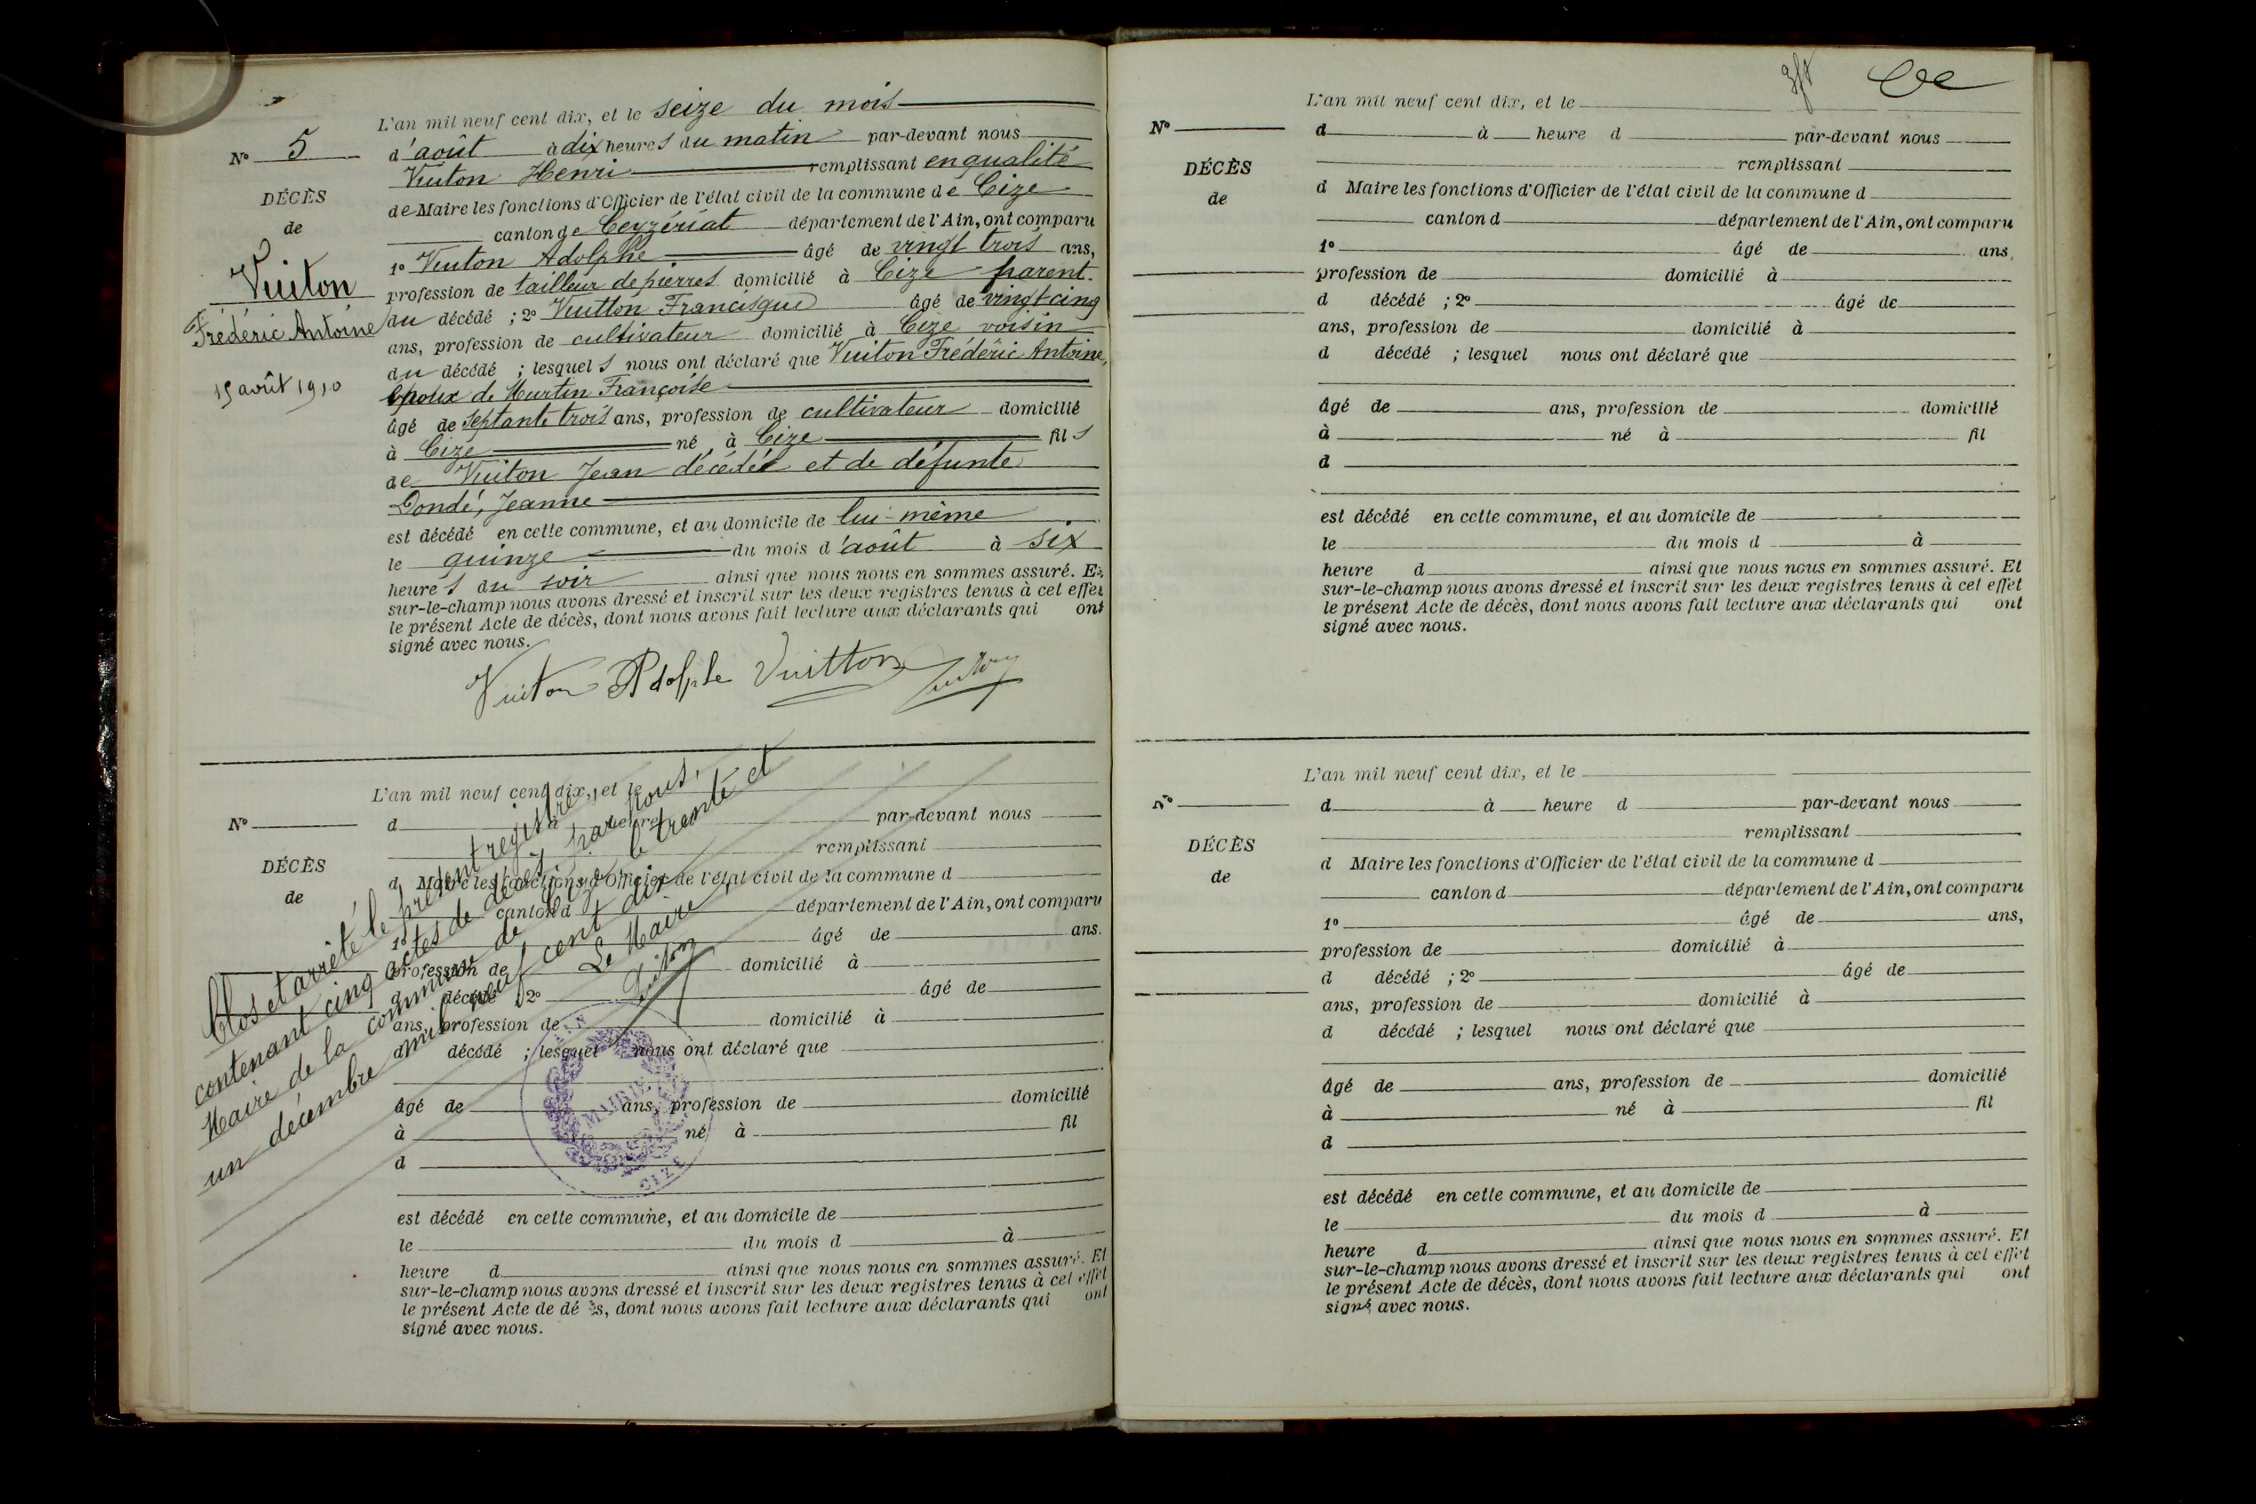 N° 5
DÉCÈS
de
Vuiton
Frédéric Antoine
15 août 1910
L'an mil neuf cent dix, et le seize du mois
d'août à dix heures du matin par-devant nous
Vuiton Henri remplissant en qualité
de Maire les fonctions d'Officier de l'état civil de la commune de Cize
canton de Ceyzériat département de l'Ain, ont comparu
1° Vuiton Adolphe âgé de vingt trois ans,
profession de tailleur de pierres domicilié à Cize parent
du décédé ; 2° Vuitton Francisque âgé de vingt-cinq
ans, profession de cultivateur domicilié à Cize voisin
du décédé ; lesquels nous ont déclaré que Vuiton Frédéric Antoine,
époux de Murtin Françoise
âgé de septante trois ans, profession de cultivateur domicilié
à Cize né à Cize fils
de Vuiton Jean décédé et de défunte
Dondé, Jeanne
est décédé en cette commune, et au domicile de lui-même
le quinze du mois d'août à six
heures du soir ainsi que nous nous en sommes assuré. Et
sur-le-champ nous avons dressé et inscrit sur les deux registres tenus à cet effet
le présent Acte de décès, dont nous avons fait lecture aux déclarants qui ont
signé avec nous.
Vuiton Adolphe Vuitton
N°
DÉCÈS
de
L'an mil neuf cent dix, et le
d à heure par-devant nous
remplissant
d Maire les fonctions d'Officier de l'état civil de la commune d
canton d département de l'Ain, ont comparu
1° âgé de ans.
profession de domicilié à
d décédé ; 2° âgé de
ans, profession de domicilié à
d décédé ; lesquel nous ont déclaré que
âgé de ans, profession de domicilié
à né à fil
d
est décédé en cette commune, et au domicile de
le du mois d à
heure d ainsi que nous nous en sommes assuré. Et
sur-le-champ nous avons dressé et inscrit sur les deux registres tenus à cet effet
le présent Acte de décès, dont nous avons fait lecture aux déclarants qui ont
signé avec nous.
Clos et arrêté le présent registre
contenant cinq actes de décès, par nous,
Maire de la commune de Cize le trente et
un décembre mil neuf cent dix
Le Maire,
AIN
MAIRIE
CIZE
L'an mil neuf cent dix, et le
N°
DÉCÈS
de
d à heure d par-devant nous
remplissant
d Maire les fonctions d'Officier de l'état civil de la commune d
canton d département de l'Ain, ont comparu
1° âgé de ans,
profession de domicilié à
d décédé ; 2° âgé de
ans, profession de domicilié à
d décédé ; lesquel nous ont déclaré que
âgé de ans, profession de domicilié
à né à fil
d
est décédé en cette commune, et au domicile de
le du mois d à
heure d ainsi que nous nous en sommes assuré. Et
sur-le-champ nous avons dressé et inscrit sur les deux registres tenus à cet effet
le présent Acte de décès, dont nous avons fait lecture aux déclarants qui ont
signé avec nous.
L'an mil neuf cent dix, et le
N°
DÉCÈS
de
d à heure d par-devant nous
remplissant
d Maire les fonctions d'Officier de l'état civil de la commune d
canton d département de l'Ain, ont comparu
1° âgé de ans,
profession de domicilié à
d décédé ; 2° âgé de
ans, profession de domicilié à
d décédé ; lesquel nous ont déclaré que
âgé de ans, profession de domicilié
à né à fil
d
est décédé en cette commune, et au domicile de
le du mois d à
heure d ainsi que nous nous en sommes assuré. Et
sur-le-champ nous avons dressé et inscrit sur les deux registres tenus à cet effet
le présent Acte de décès, dont nous avons fait lecture aux déclarants qui ont
signé avec nous.